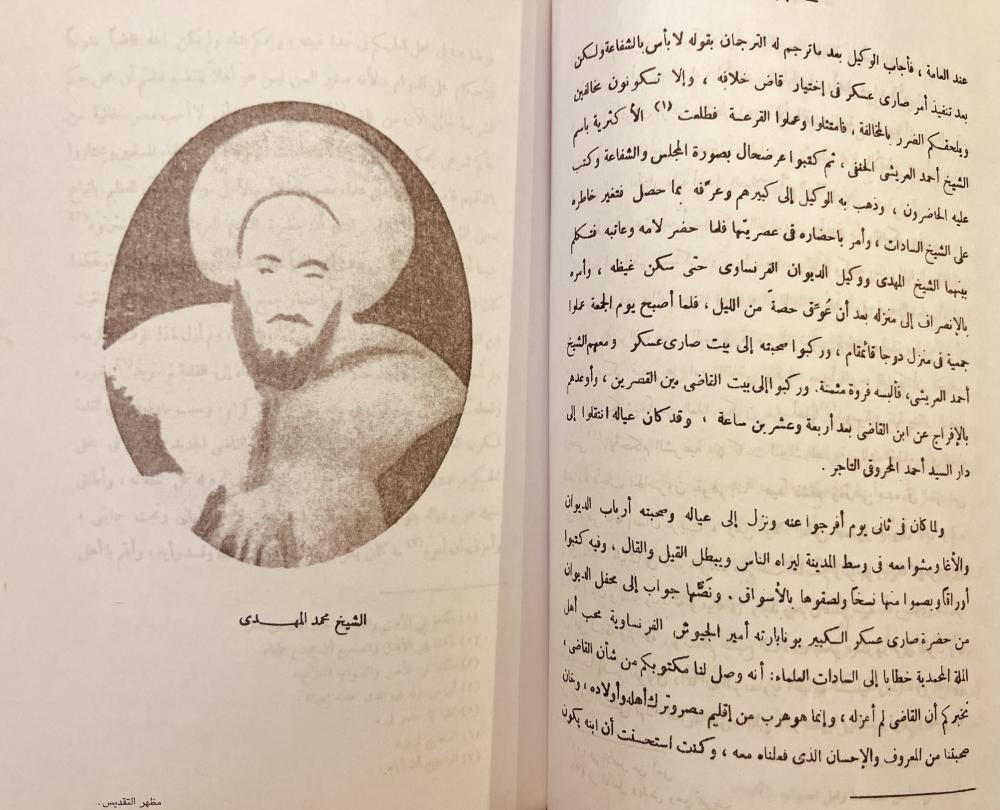 عند العامة ، فأجاب الوكيل بعد ما ترجم له الترجمان بقوله لا بأس بالشفاعة ولكن
بعد تنفيذ أمر صارى عسكر فى إختيار قاض خلافه ، وإلا تكونون مخالفين
ويلحقكم الضرر بالمخالفة ، فامتثلوا وعملوا القرعة فطلعت (١) الأكثرية باسم
الشيخ أحمد العريشى الحنفى ، ثم كتبوا عرضحال بصورة المجلس والشفاعة وكتب
عليه الحاضرون ، وذهب به الوكيل إلى كبيرهم وعرّفه بما حصل فتغير خاطره
على الشيخ السادات ، وأمر باحضاره فى عصريتها فلما حضر لامه وعاتبه فتكلم
بينهما الشيخ المهدى ووكيل الديوان الفرنساوى حتى سكن غيظه ، وأمره
بالإنصراف إلى منزله بعد أن عُوِّق حصة من الليل ، فلما أصبح يوم الجمعة عملوا
جمعية فى منزل دوجا قائمقام ، وركبوا صحبته إلى بيت صارى عسكر ومعهم الشيخ
أحمد العريشى، فألبسه فروة مثمنة. وركبوا إلى بيت القاضى بين القصرين ، وأوعدهم
بالإفراج عن ابن القاضى بعد أربعة وعشرين ساعة ، وقد كان عياله انتقلوا إلى
دار السيد أحمد المحروقى التاجر .
ولما كان فى ثانى يوم أفرجوا عنه ونزل إلى عياله وصحبته أرباب الديوان
والأغا ومشوا معه فى وسط المدينة ليراه الناس ويبطل القيل والقال ، وفيه كتبوا
أوراقاً وبصموا منها نسخاً ولصقوها بالأسواق . ونَصُّها جواب إلى محفل الديوان
من حضرة صارى عسكر الكبير بونابارته أمير الجيوش الفرنساوية محب أهل
الملة المحمدية خطابا إلى السادات العلماء: أنه وصل لنا مكتوبكم من شأن القاضى،
نخبركم أن القاضى لم أعزله ، وإنما هو هرب من إقليم مصر وترك أهله وأولاده ، وخان
صحبتنا من المعروف والإحسان الذى فعلناه معه ، وكنت استحسنت أن ابنه يكون
الشيخ محمد المهدى
مظهر التقديس.